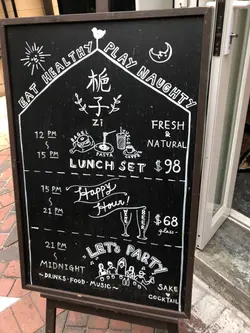 EAT HEALTHY PLAY NAUGHTY
栀
子
zi
12 PM
~
15 PM
FRESH &
NATURAL
BAGEL
PASTA
LUNCH SET $98
15 PM
~
21 PM
Happy
Hour!
$68
glass
21 PM
~
MIDNIGHT
LET'S PARTY
~DRINKS·FOOD·MUSIC~
SAKE
&
COCKTAIL